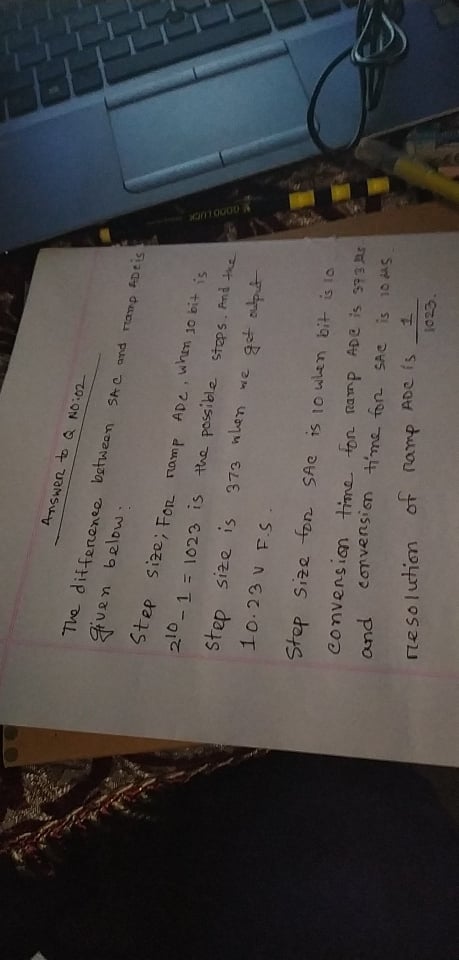 Answer to Q NO:02
The difference between SAC and ramp ADC is
given below:
Step size; For ramp ADC, when 10 bit is
2^10 - 1 = 1023 is the possible steps. And the
step size is 373 when we get output
10.23 V F.S.
Step size for SAC is 10 when bit is 10
conversion time for ramp ADC is 373 μs
and conversion time for SAC is 10 μs
resolution of ramp ADC is 1/1023.